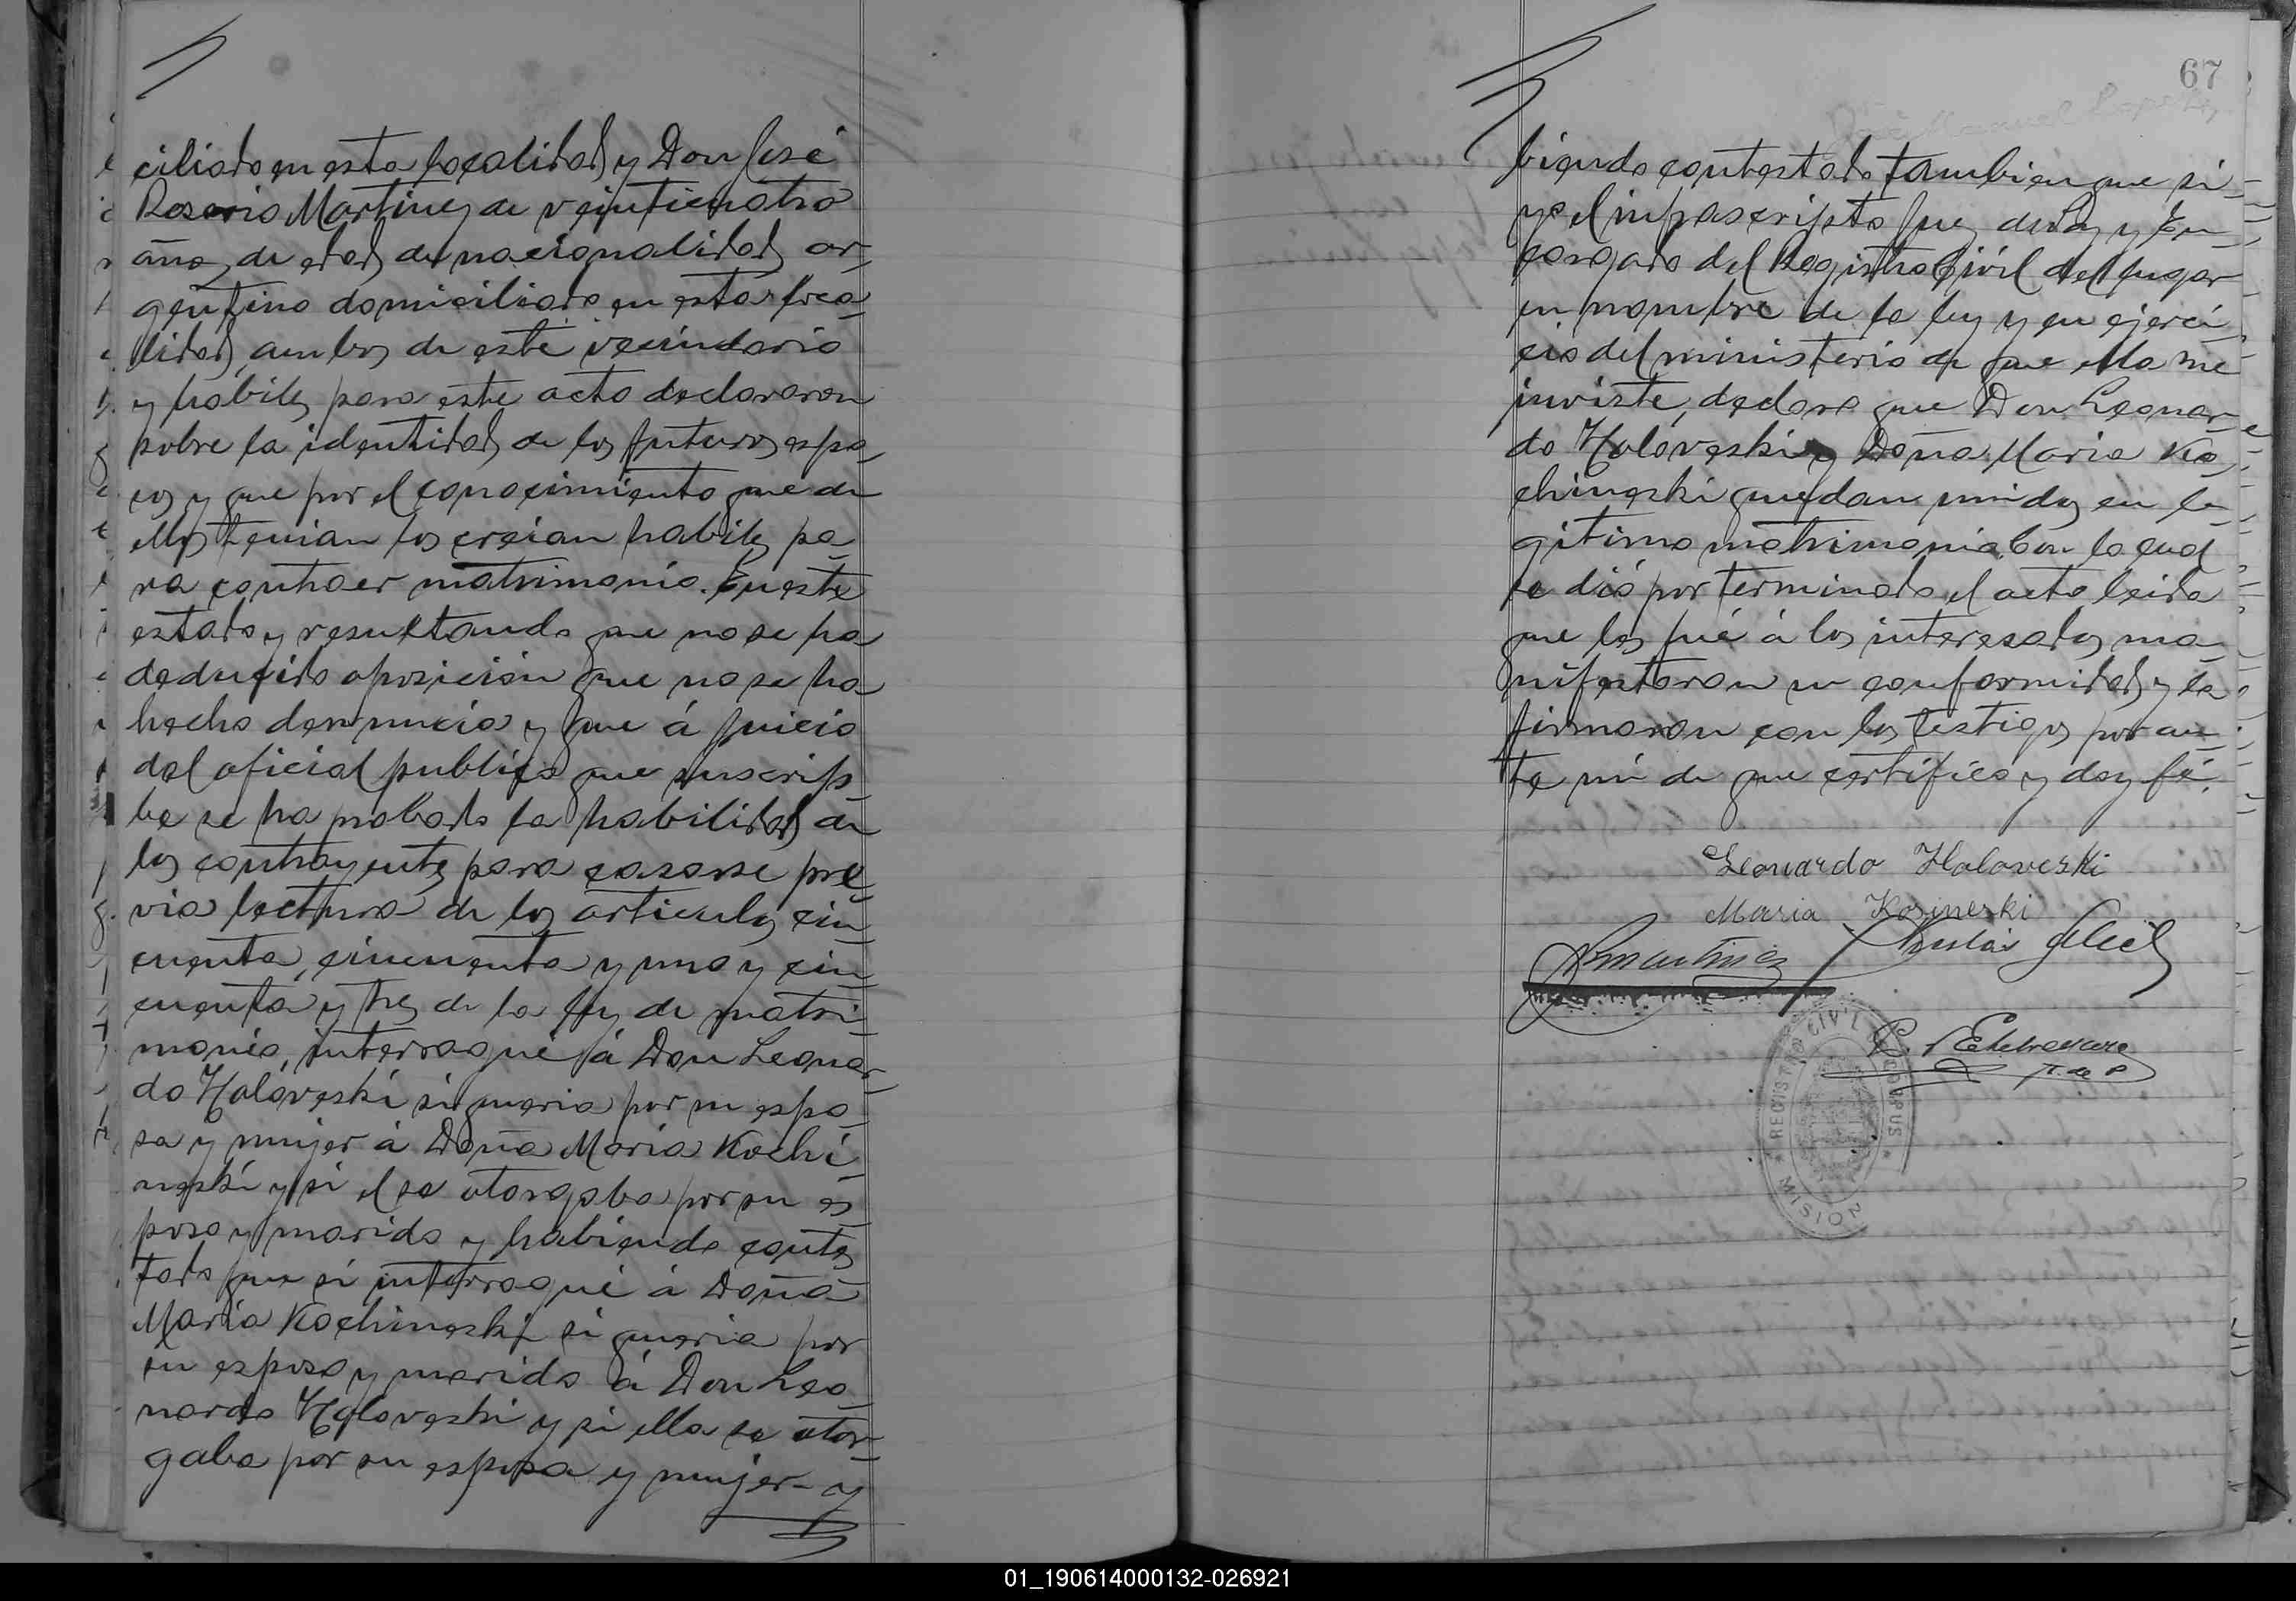 ciliado en esta localidad y Don José
Rosario Martinez de veinticuatro
años de edad de nacionalidad ar-
gentino domiciliado en esta loca-
lidad, ambos de este vecindario
y hábiles para este acto declararon
sobre la identidad de los futuros espo-
sos y que por el conocimiento que de
ellos tenian los creian habiles pa-
ra contraer matrimonio. En este
estado y resultando que no se ha
deducido oposición que no se ha
hecho denuncia y que á juicio
del oficial publico que suscrip-
be se ha probado la habilidad de
los contrayentes para casarse pré-
via lectura de los articulos cin-
cuenta, cincuenta y uno y cin-
cuenta y tres de la ley de matri-
monio, interrogué á Don Leonar-
do Holóveski si queria por su espo-
sa y mujer á Doña Maria Kochi-
neski y si el se otorgaba por su es-
poso y marido y habiendo contes-
tado que si interrogué á Doña
Maria Kochineski si queria por
su esposo y marido á Don Leo-
nardo Holoveski y si ella se otor-
gaba por su esposa y mujer y
67
biendo contestado tambien que si
yo el infrascripto Juez de Paz y En-
cargado del Registro Civil del lugar
en nombre de la ley y en ejerci-
cio del ministerio de que ella me
inviste, declaro que Don Leonar-
do Holóveski y Doña Maria Ko-
chineski quedan unidos en le-
gitimo matrimonio, con lo cual
se dió por terminado el acto leida
que les fué á los interesados ma-
nifestaron su conformidad y la
firmaron con los testigos por an-
te mi de que certifico y doy fé.
Leonardo Holoveski
Maria Kosineski
R Martinez
J. de P
REGISTRO CIVIL
MISION
01_190614000132-026921